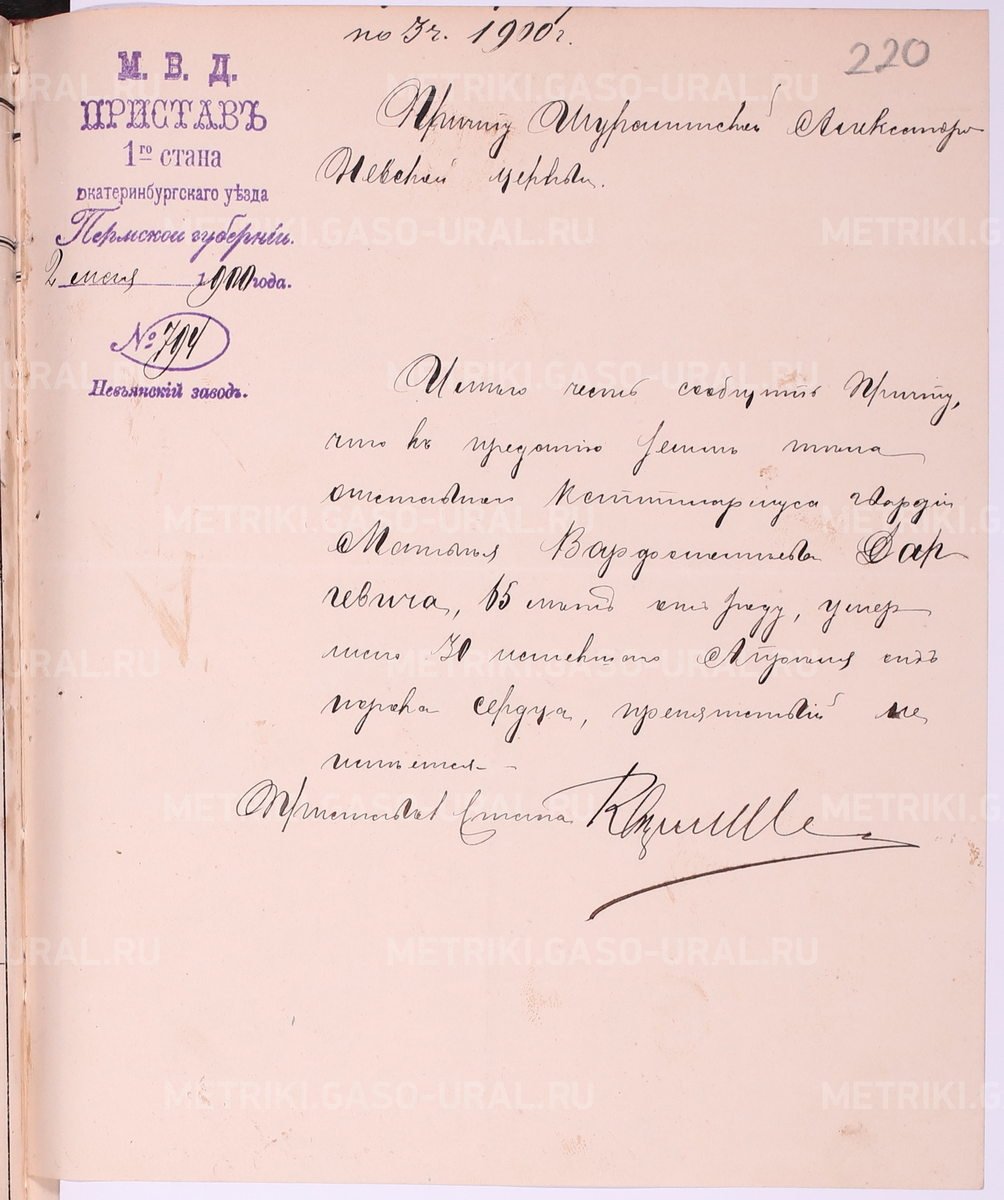 по 3 ч. 1900 г.
220
М. В. Д.
ПРИСТАВЪ
1го стана
Екатеринбургскаго уѣзда
Пермской губерніи.
2 мая 1900 года.
№ 794
Невьянскій заводъ.
Причту Шуралинской Александро
Невской церкви.
Имѣю честь сообщить Причту,
что къ преданію землѣ тѣла
отставнаго каптенармуса гвардіи
Матвѣя Сар
гевича, 65 лѣтъ отъ роду, умер
шаго 30 истекшаго Апрѣля отъ
порока сердца, препятствій не
имѣется.
Приставъ 1 стана
METRIKI.GASO-URAL.RU